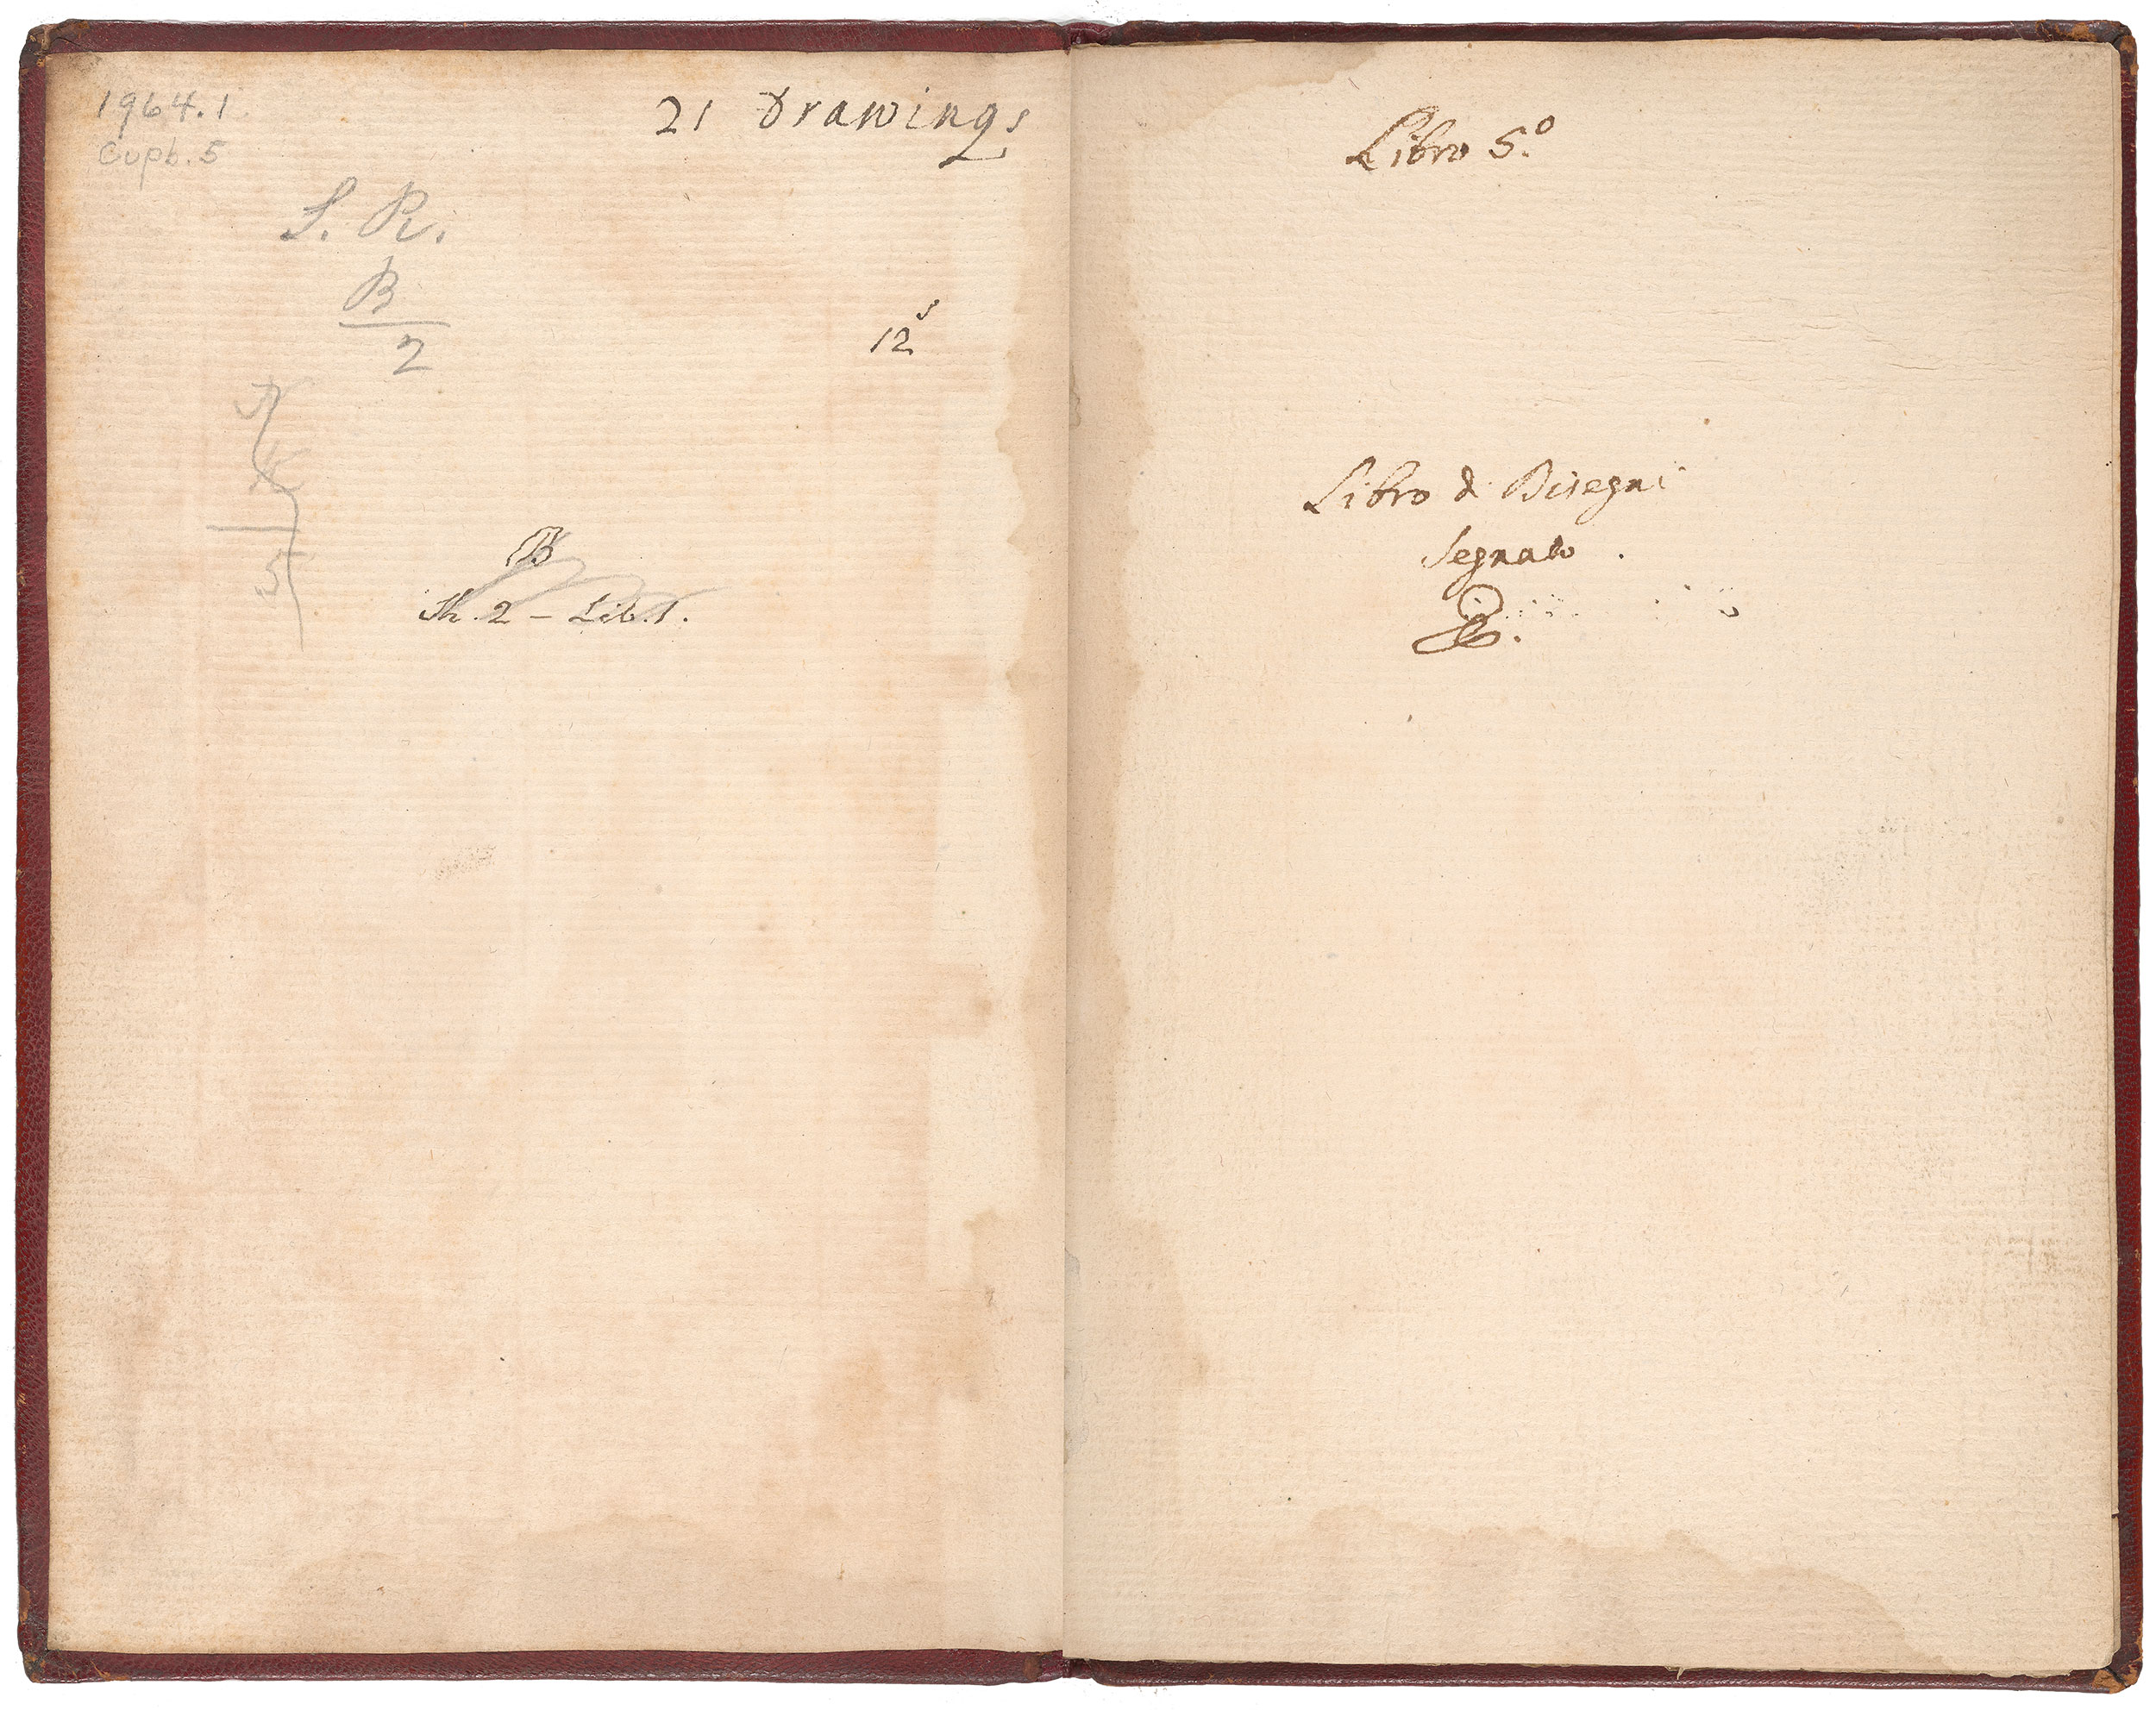 1964.1
Cupb. 5
21 Drawings
S. R.
B
2
12s
B
Sh. 2 – Lib. 1.
Libro 5.o
Libro di Disegni
Segnato .